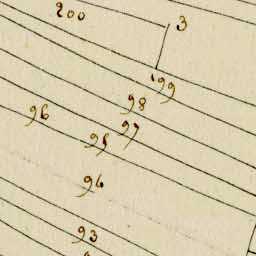 200
3
199
98
97
96
95
94
93